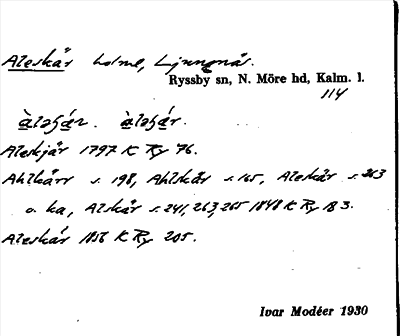 Aleskär holme, Ljungnäs.
Ryssby sn, N. Möre hd, Kalm. l.
114
àləʃæ̀r. àləʃár.
Aleskjär 1797 K Ry 76.
Ahlkärr s. 198, Ahlskär s. 165, Aleskär s. 263
o. ka, Alskär s. 241, 263, 265 1848 K Ry 183.
Aleskär 1856 K Ry 205.
Ivar Modéer 1930